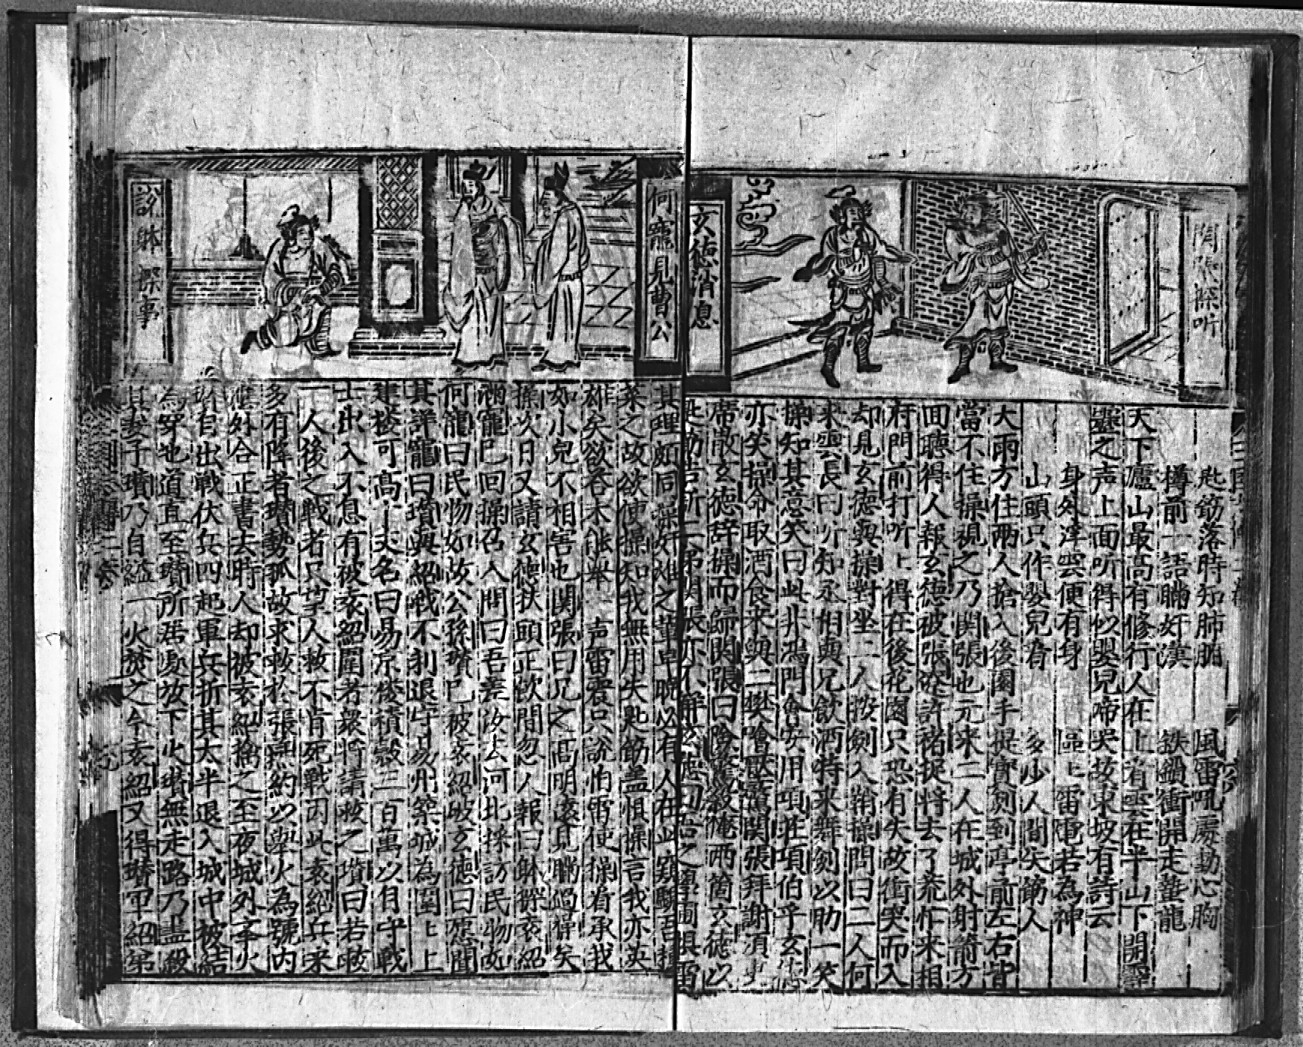 関張探听
玄德消息
匙筯落時知肺腑　風雷吼處動心胸
樽前一語瞞奸漢　鉄鎖衝開走蟄龍
天下廬山最高有修行人在上有雲在半山下開霹
靂之声上面听得似嬰児啼哭故東坡有詩云
身外浮雲便有身　區上雷電若為神
山頭只作嬰児看　多少人間失筯人
大雨方住兩人搶入後園手提寶剣到亭前左右皆
當不住操視之乃関張也元来二人在城外射箭方
回聽得人報玄德被張遼許褚捉將去了荒忙来相
府門前打听上得在後花園只恐有失故衝突而入
却見玄德與操對坐二人按剣入操問曰二人何
来雲長曰听知丞相與兄飲酒特来舞剣以助一笑
操知其意笑曰此非鴻門會安用項庄項伯乎玄德
亦笑操命取酒食来與二樊噲壓驚関張拜謝湏臾
席散玄德辞操而歸関張曰險些殺俺兩箇玄德以
此動告所二弟関張亦不解玄德曰吾之
何寵見曹公
說躰探事
其理如同操奸雄之輩
菜之故欲使操知我無用失匙筯盖惧操言我亦英
雄矣欲吞未能舉一声雷震只說怕雷使操看承我
如小児不相害也関張曰兄之高明遠見瞞過得矣
操次日又請玄德扶頭正飲間忽人報曰躰探袁紹
滿寵已回操召入問曰吾差汝去河北採訪民物
何寵曰民物如故公孫瓚已被袁紹破玄德曰愿聞
其詳寵曰瓚與紹戦不利退守易州築城為圍上
建楼可髙十丈名曰易京楼積糓三百萬以自守戦
士出入不息有被袁紹圍者衆將請救之瓚曰若救
一人後之戦者只望人救不肯死戦因此袁紹兵来
多有降者瓚勢孤故求救於張燕約以舉火為號内
應外合正書去時人却被袁紹擒之至夜城外舉火
瓚自出戦伏兵四起軍兵折其太半退入城中被紹
為穿地道直至瓚所居處放下火瓚無走路乃盡殺
其妻子瓚乃自縊一火焚之今袁紹又得瓚軍紹弟